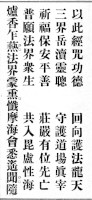 以此經咒功德　回向護法龍天
三界岳瀆靈聰　守護道場眞宰
祈福保安平善　莊嚴有位先亡
普願法界衆生　共入毘盧性海
爐香乍爇法界蒙熏懺摩海會悉遙聞隨